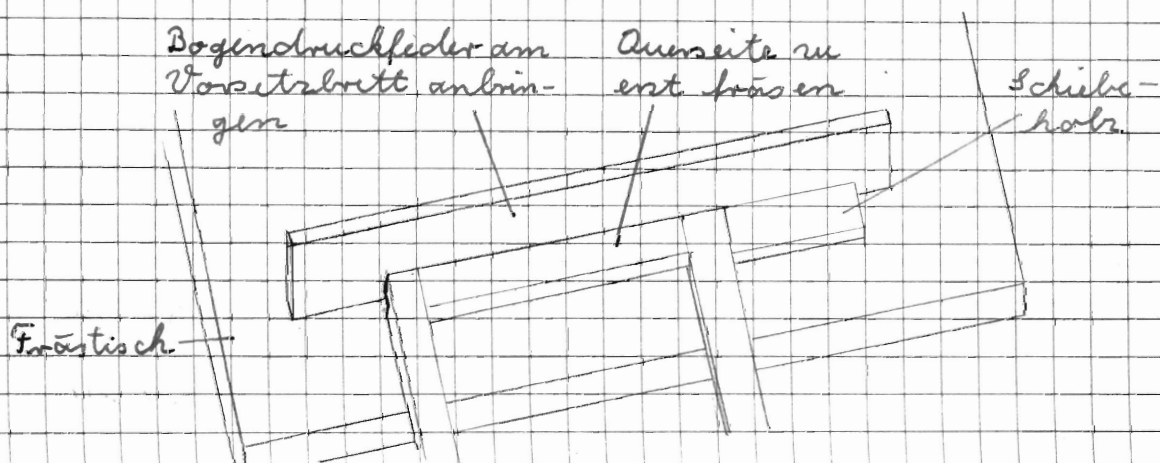 Bogendruckfeder am
Vorsetzbrett anbrin-
gen
Querseite zu
erst fräsen
Schiebe-
holz.
Frästisch